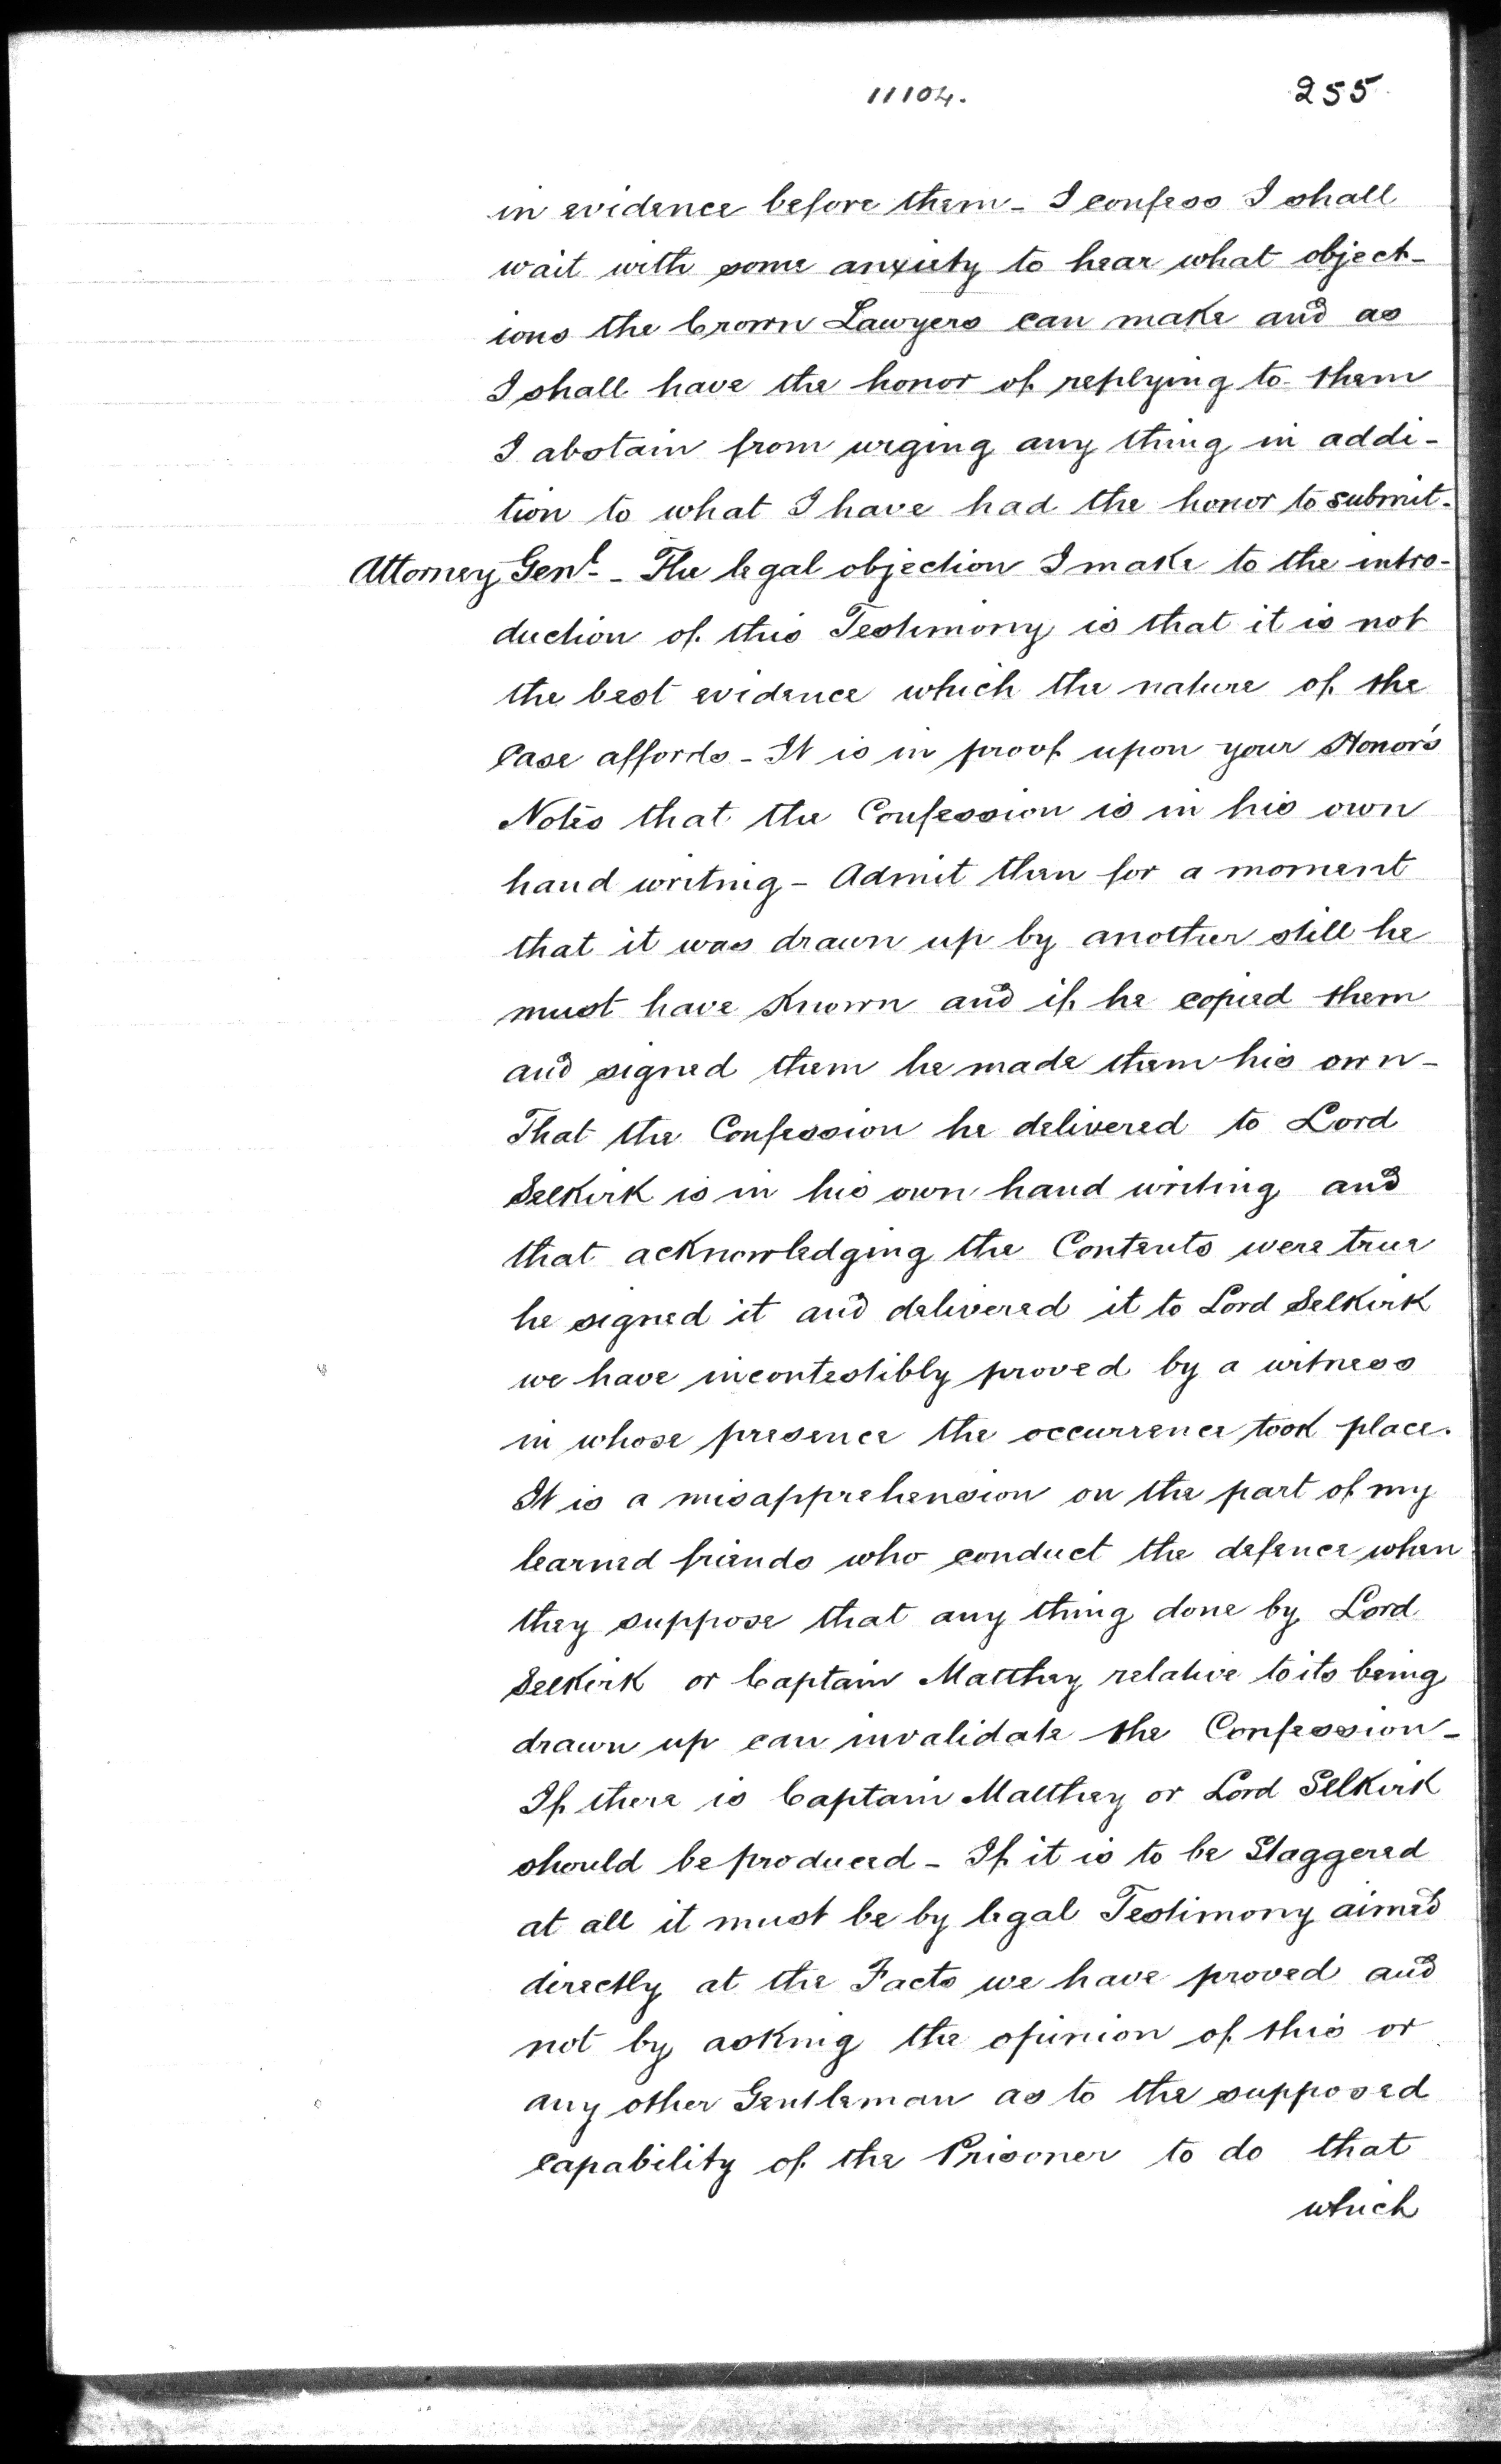 11104.
255
in evidence before them - I confess I shall
wait with some anxiety to hear what object-
ions the Crown Lawyers can make and as
I shall have the honor of replying to them
I abstain from urging any thing in addi-
tion to what I have had the honor to submit.
Attorney Genl. - The legal objection I make to the intro-
duction of this Testimony is that it is not
the best evidence which the nature of the
Case affords - It is in proof upon your Honor's
Notes that the Confession is in his own
hand writing - Admit then for a moment
that it was drawn up by another still he
must have known and if he copied them
and signed them he made them his own -
That the Confession he delivered to Lord
Selkirk is in his own hand writing and
that acknowledging the Contents were true
he signed it and delivered it to Lord Selkirk
we have incontestibly proved by a witness
in whose presence the occurrence took place.
It is a misapprehension on the part of my
learned friends who conduct the defence when
they suppose that any thing done by Lord
Selkirk or Captain Matthey relative to its being
drawn up can invalidate the Confession -
If there is Captain Matthey or Lord Selkirk
should be produced - If it is to be Staggered
at all it must be by legal Testimony aimed
directly at the Facts we have proved and
not by asking the opinion of this or
any other Gentleman as to the supposed
capability of the Prisoner to do that
which